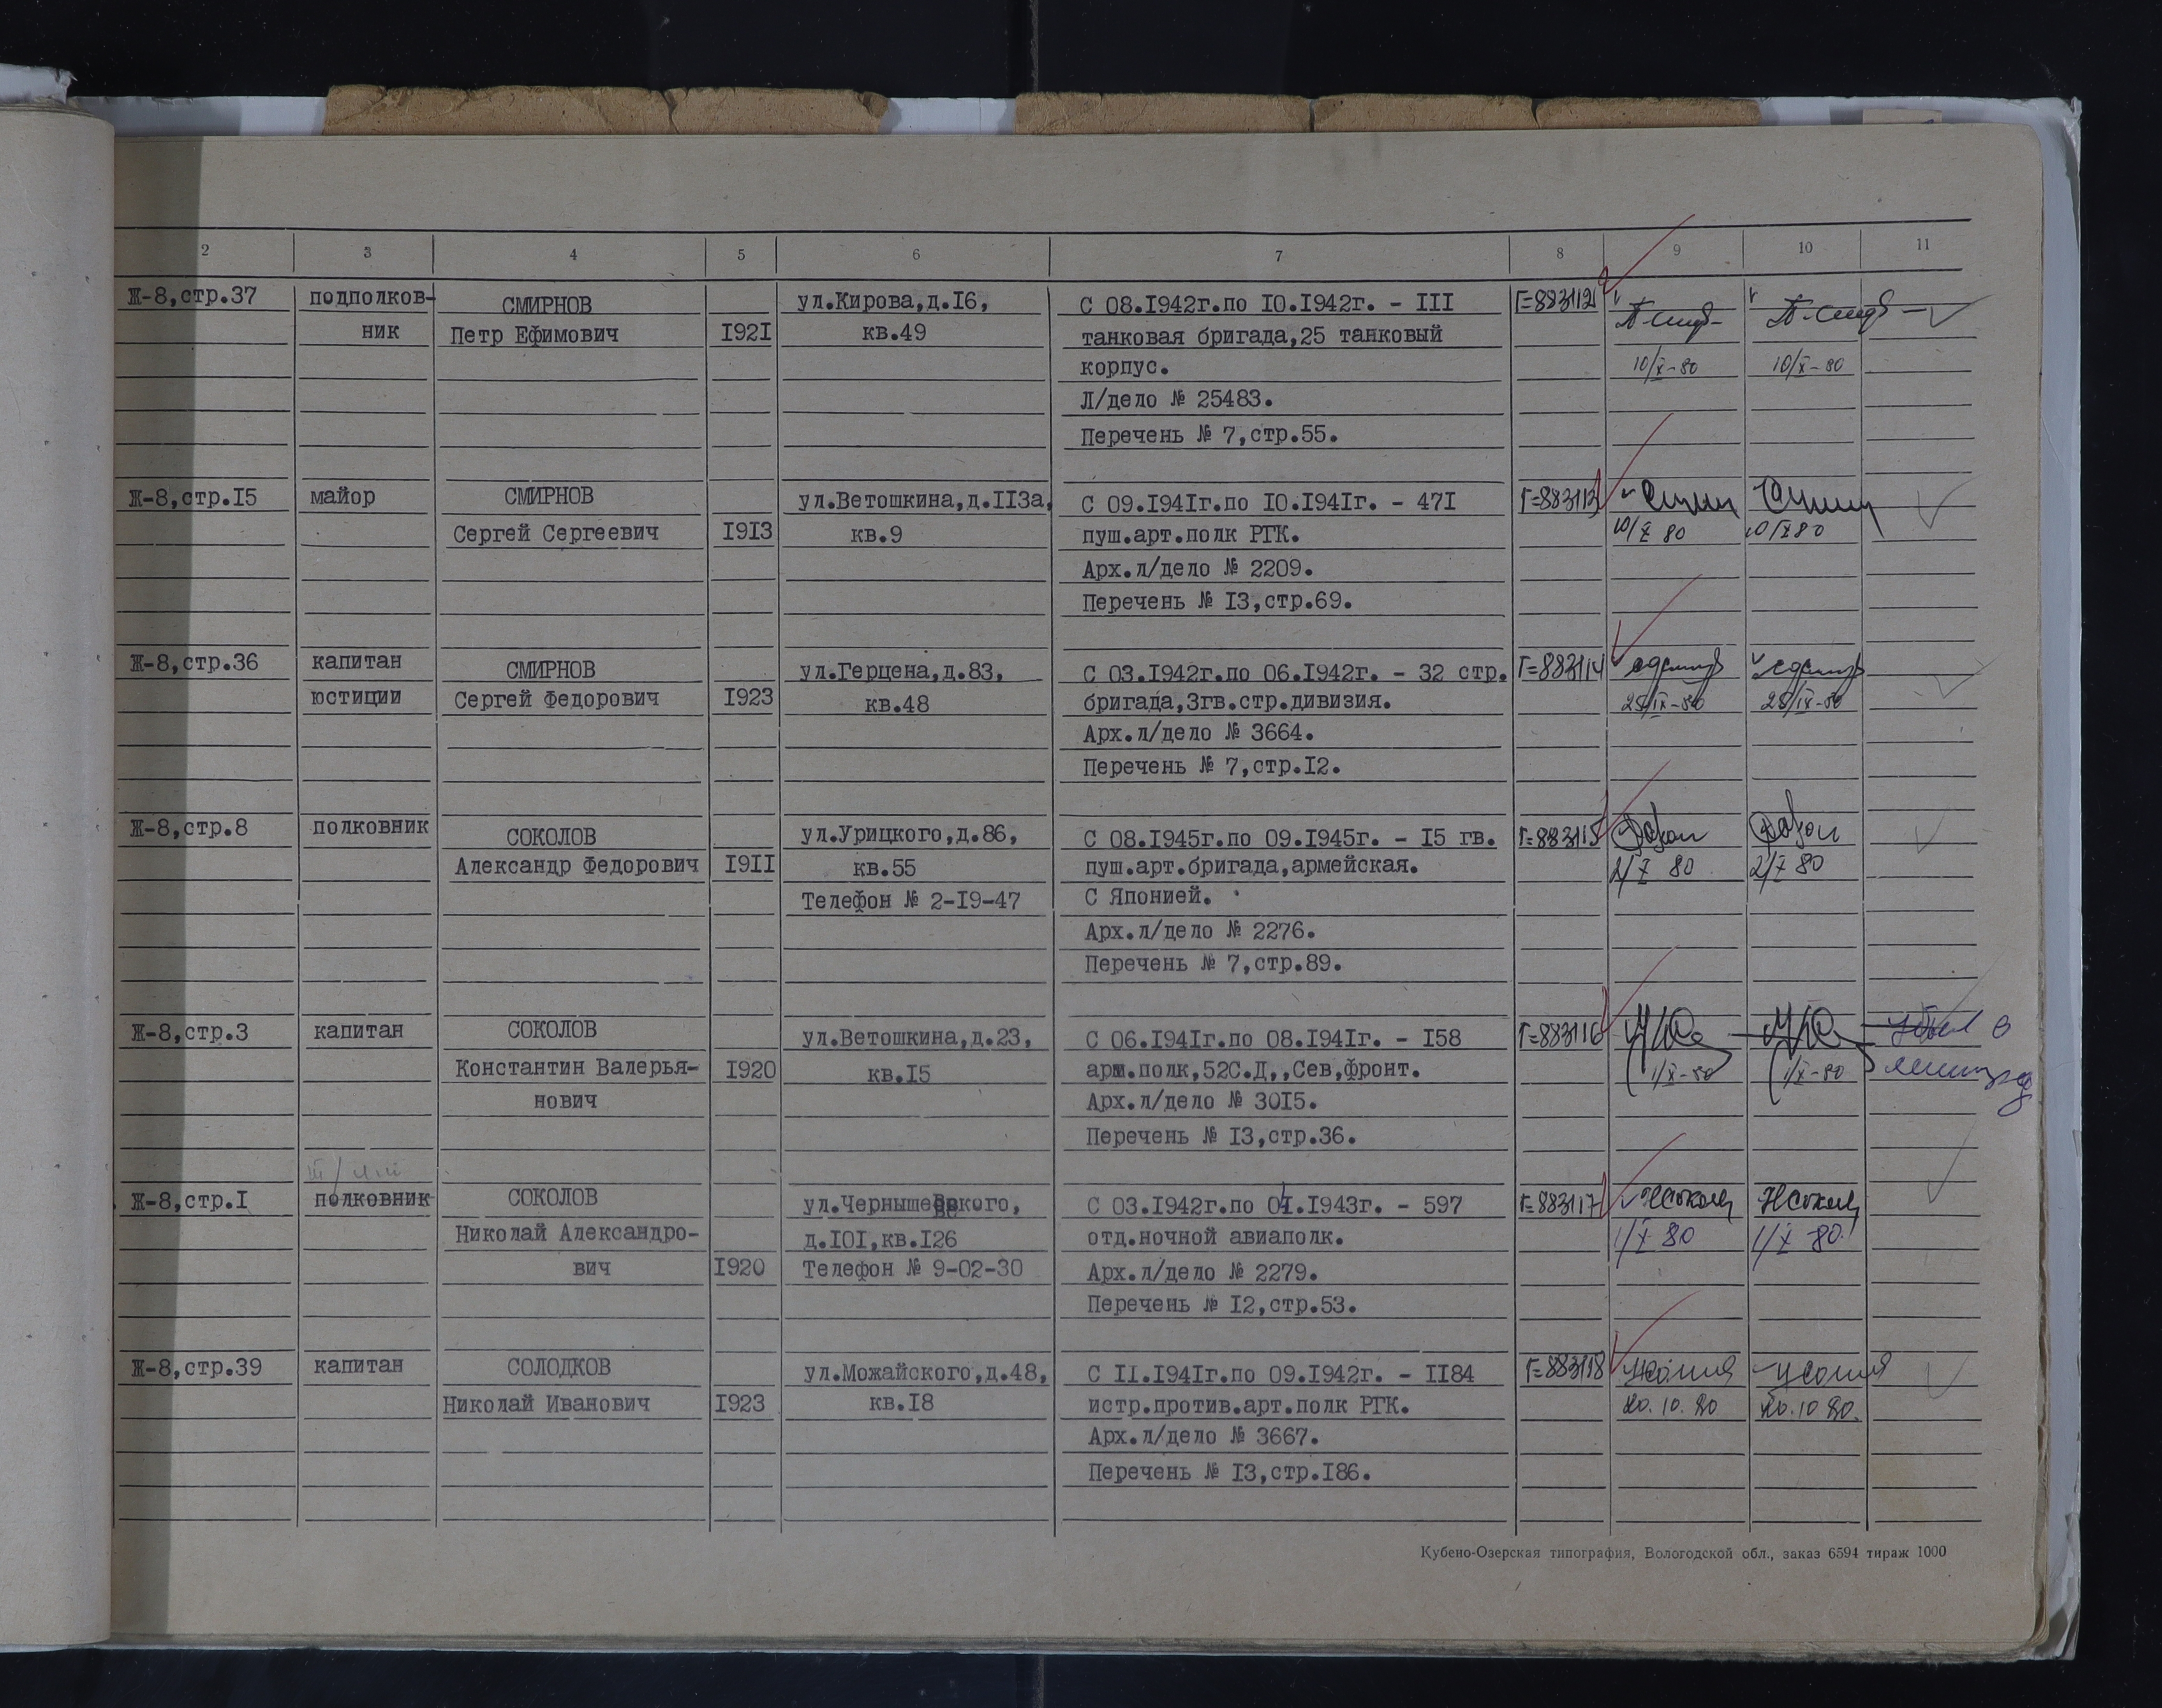 2 3 4 5 6 7 8 9 10 11
Ж-8,стр.37 подполков- СМИРНОВ ул.Кирова,д.I6, С 08.I942г.по I0.I942г. - III Г=883112
ник Петр Ефимович I92I кв.49 танковая бригада,25 танковый
корпус. 10/X-80 10/X-80
Л/дело № 25483.
Перечень № 7,стр.55.
Ж-8,стр.I5 майор СМИРНОВ ул.Ветошкина,д.II3а, С 09.I94Iг.по I0.I94Iг. - 47I Г=883113
Сергей Сергеевич I9I3 кв.9 пуш.арт.полк РГК. 10/X 80 10/X 80
Арх.л/дело № 2209.
Перечень № I3,стр.69.
Ж-8,стр.36 капитан СМИРНОВ ул.Герцена,д.83, С 03.I942г.по 06.I942г. - 32 стр. Г=883114
юстиции Сергей Федорович I923 кв.48 бригада,3гв.стр.дивизия. 25/IX-80 25/IX-80
Арх.л/дело № 3664.
Перечень № 7,стр.I2.
Ж-8,стр.8 полковник СОКОЛОВ ул.Урицкого,д.86, С 08.I945г.по 09.I945г. - I5 гв. Г=883115
Александр Федорович I9II кв.55 пуш.арт.бригада,армейская. 2/X 80 2/X 80
Телефон № 2-I9-47 С Японией.
Арх.л/дело № 2276.
Перечень № 7,стр.89.
Ж-8,стр.3 капитан СОКОЛОВ ул.Ветошкина,д.23, С 06.I94Iг.по 08.I94Iг. - I58 Г=883116 убыл в
Константин Валерья- I920 кв.I5 арм.полк,52С.Д,,Сев,фронт. 1/X-80 1/X-80
нович Арх.л/дело № 30I5.
Перечень № I3,стр.36.
Ж-8,стр.I полковник СОКОЛОВ ул.Чернышевского, С 03.I942г.по 0I.I943г. - 597 Г=883117 НСокол НСокол
Николай Александро- д.I0I,кв.I26 отд.ночной авиаполк. 1/X 80 1/X 80.
вич I920 Телефон № 9-02-30 Арх.л/дело № 2279.
Перечень № I2,стр.53.
Ж-8,стр.39 капитан СОЛОДКОВ ул.Можайского,д.48, С II.I94Iг.по 09.I942г. - II84 Г=883118
Николай Иванович I923 кв.I8 истр.против.арт.полк РГК. 20.10.80 20.10 80.
Арх.л/дело № 3667.
Перечень № I3,стр.I86.
Кубено-Озерская типография, Вологодской обл., заказ 6594 тираж 1000